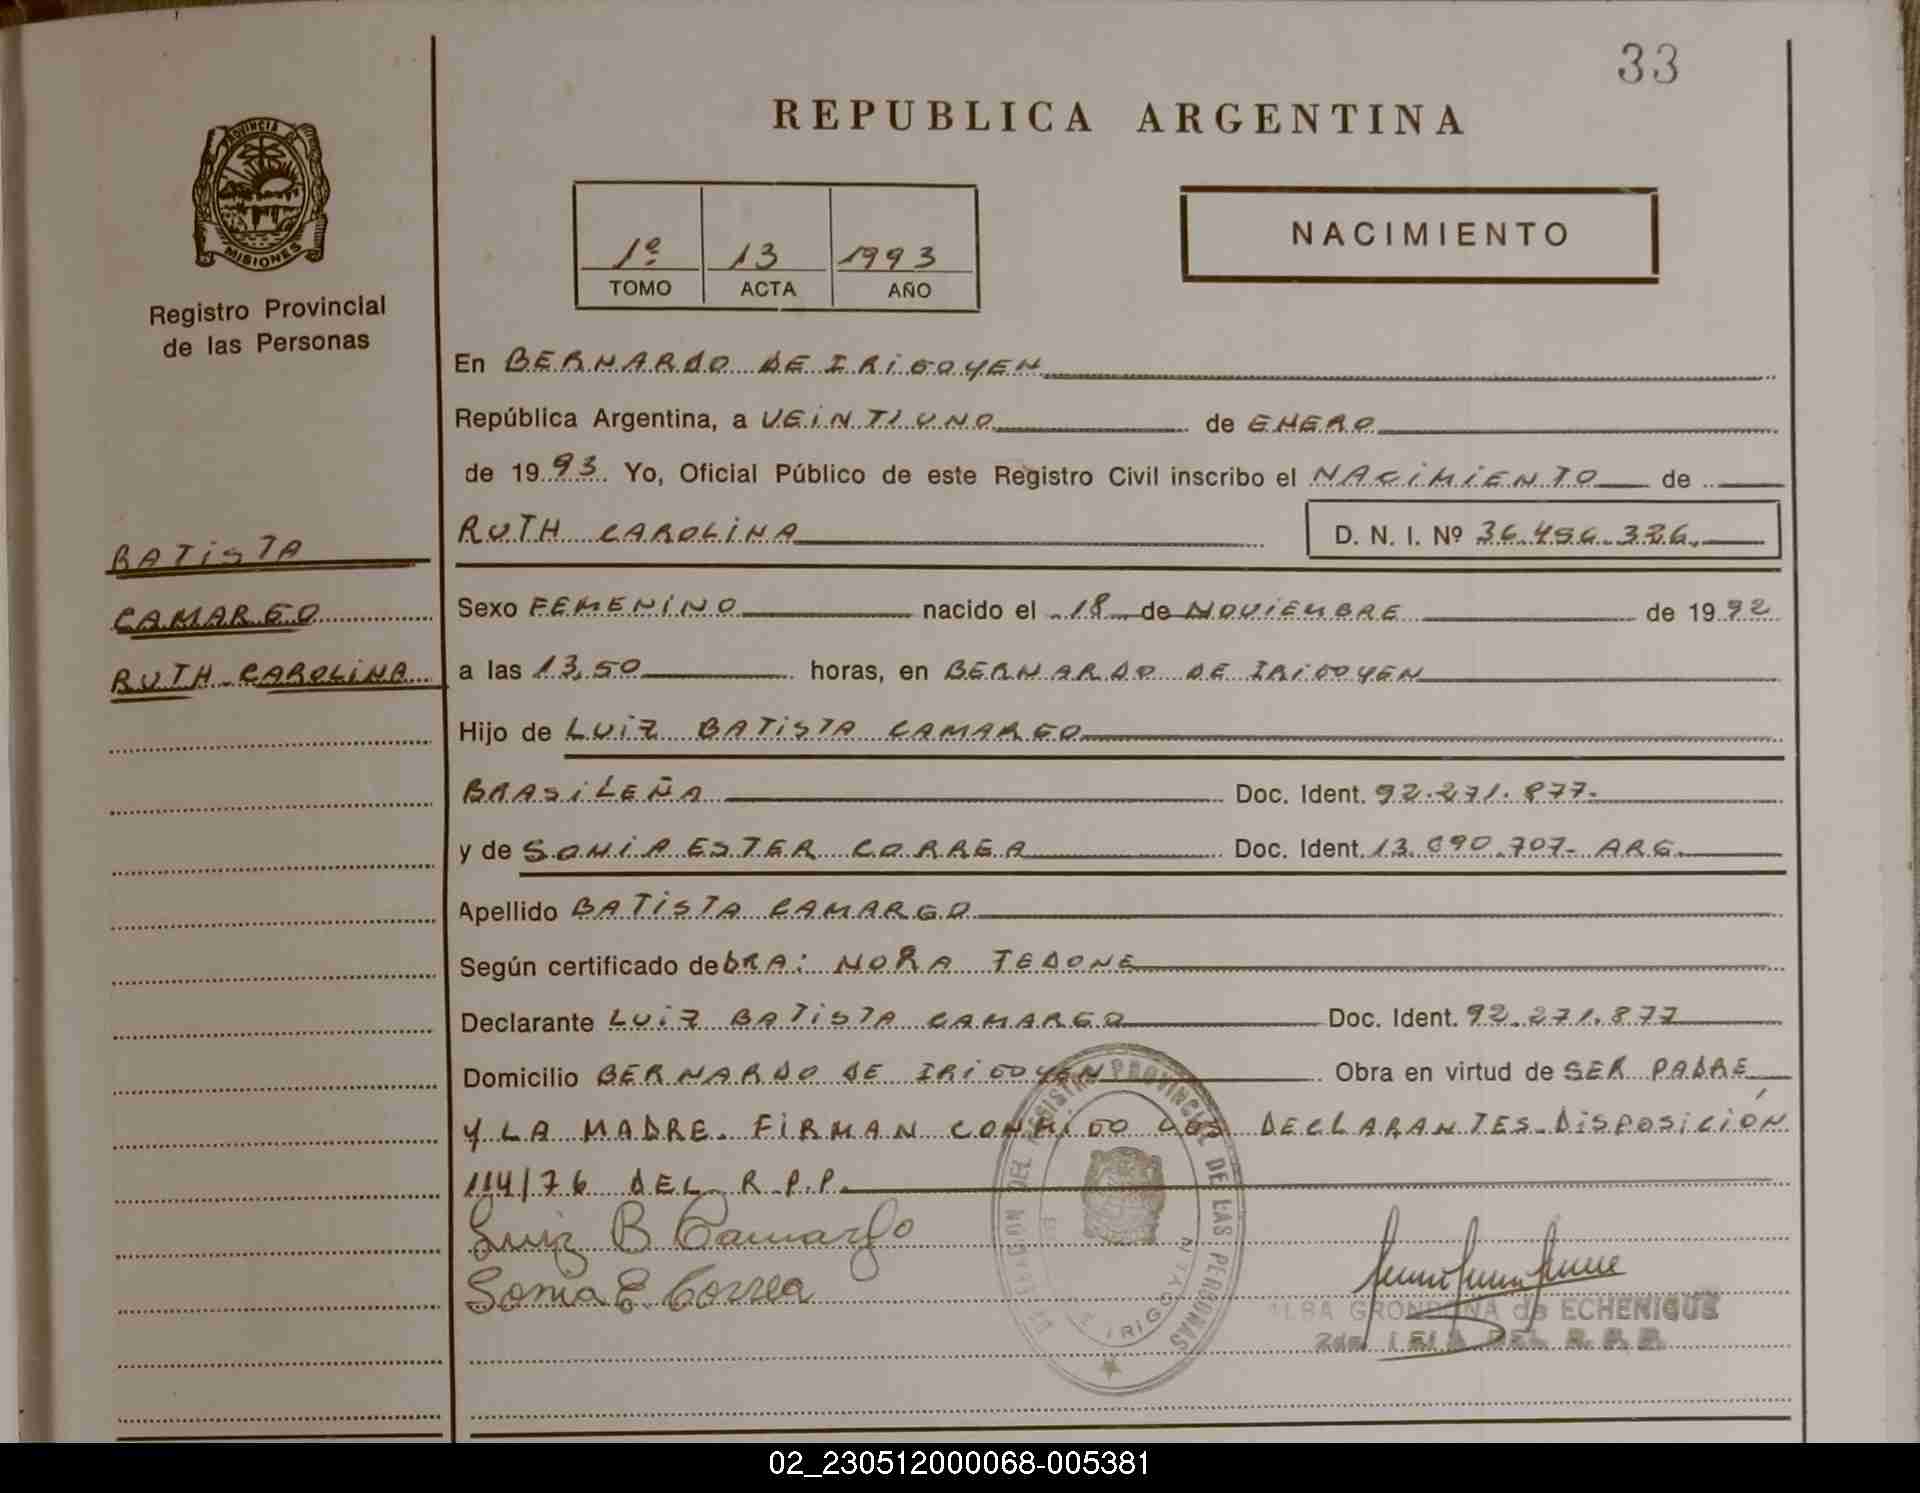 33
REPUBLICA ARGENTINA
PROVINCIA DE
MISIONES
Registro Provincial
de las Personas
1º 13 1993
TOMO ACTA AÑO
NACIMIENTO
En BERNARDO DE IRIGOYEN
República Argentina, a VEINTIUNO de ENERO
de 1993. Yo, Oficial Público de este Registro Civil inscribo el NACIMIENTO de
RUTH CAROLINA D. N. I. Nº 36.456.326.
BATISTA
CAMARGO
RUTH CAROLINA
Sexo FEMENINO nacido el 18 de NOVIEMBRE de 1992
a las 13,50 horas, en BERNARDO DE IRIGOYEN
Hijo de LUIZ BATISTA CAMARGO
BRASILEÑA Doc. Ident. 92.271.877.
y de SONIA ESTER CORREA Doc. Ident. 13.890.707- ARG.
Apellido BATISTA CAMARGO
Según certificado de DRA: NORA TEDONE
Declarante LUIZ BATISTA CAMARGO Doc. Ident. 92.271.877
Domicilio BERNARDO DE IRIGOYEN Obra en virtud de SER PADRE
Y LA MADRE. FIRMAN CONMIGO LOS DECLARANTES. DISPOSICIÓN
114/76 DEL R.P.P.
Luiz B Camargo
Sonia E. Correa
REGISTRO PROVINCIAL DE LAS PERSONAS
IRIGOYEN
ALBA GRONDONA de ECHENIQUE
DEL R.P.P.
02_230512000068-005381